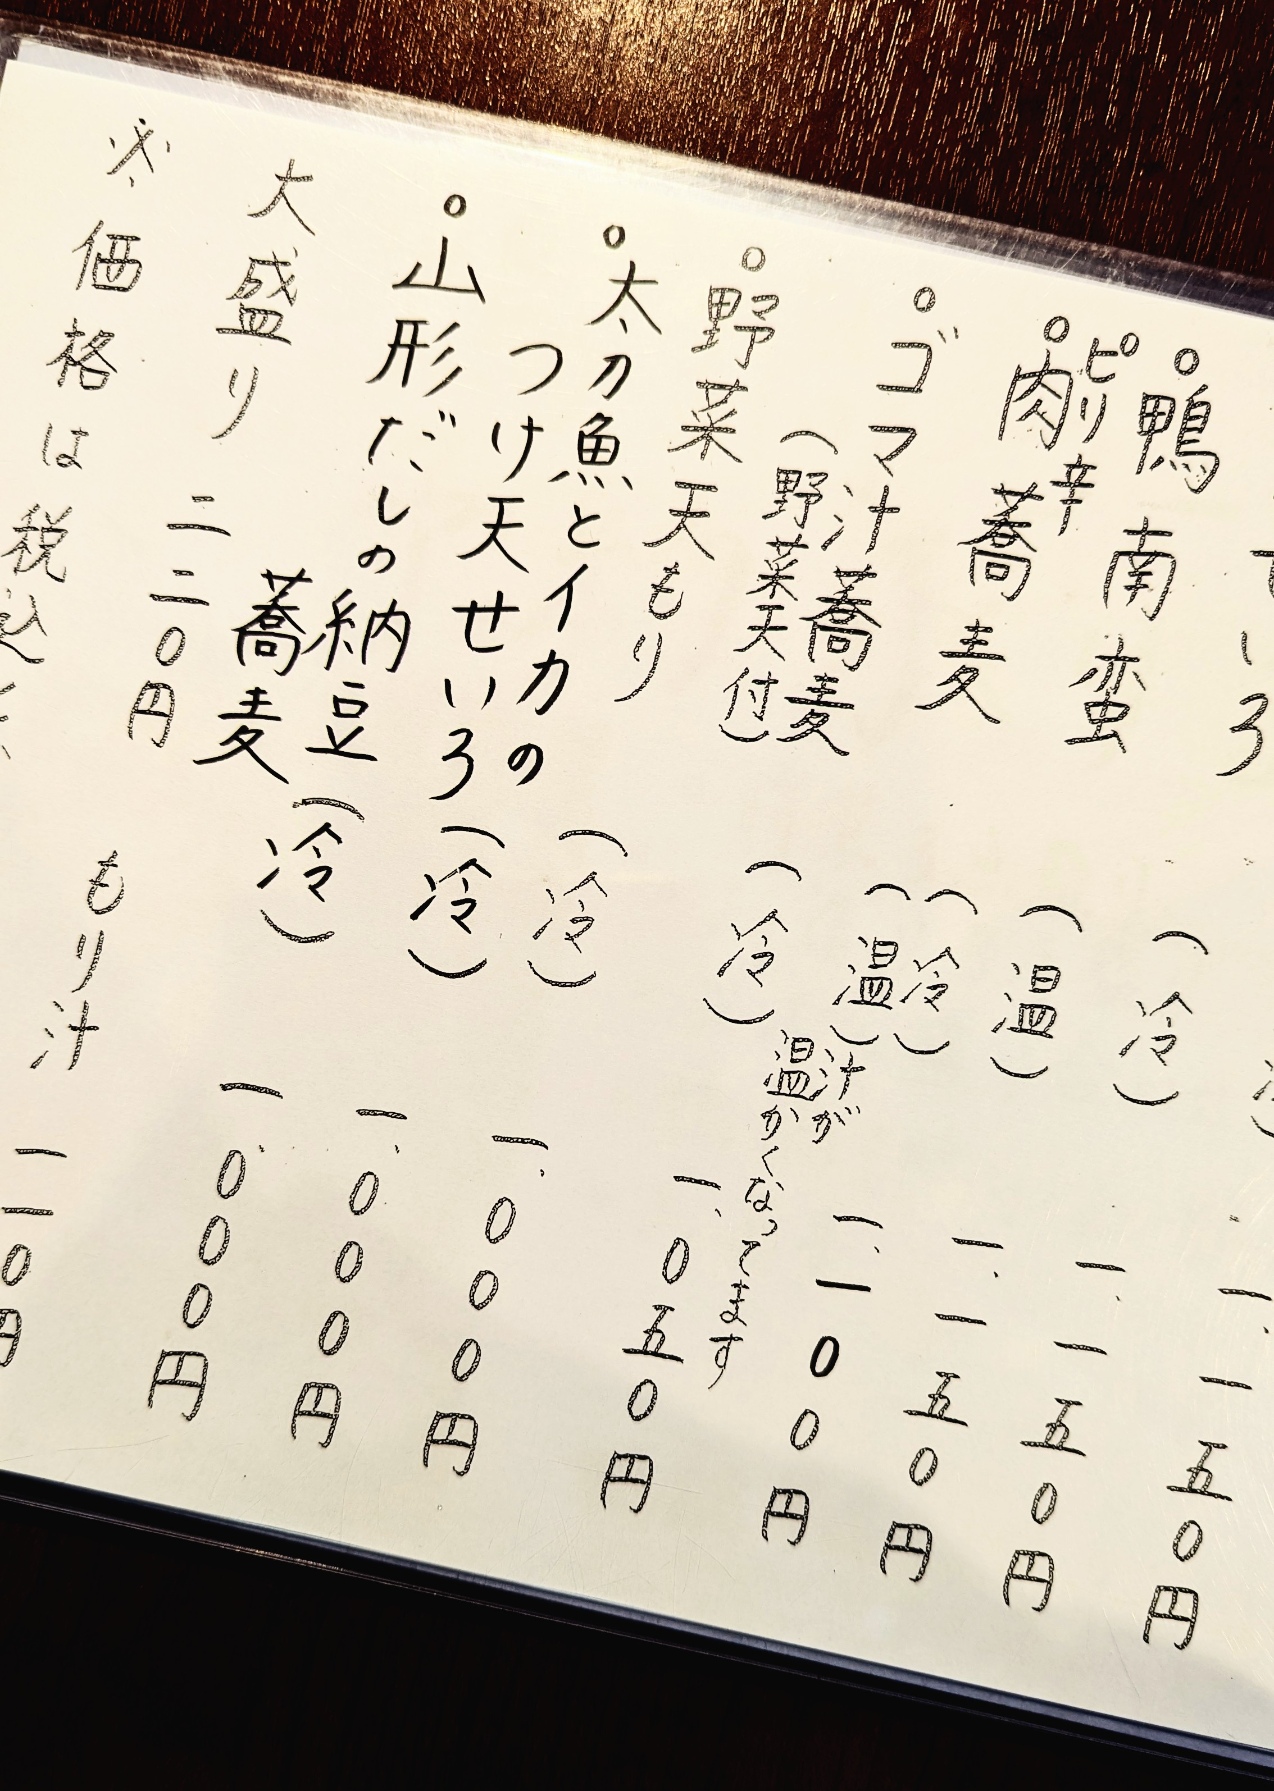 せいろ（冷）一、一五〇円
一、一五〇円
鴨南蛮（温）一、一五〇円
ピリ辛
肉蕎麦（冷）（温）一、一〇〇円
汁が
温かくなってます
ゴマ汁蕎麦（冷）一、〇五〇円
（野菜天付）
野菜天もり（冷）一、〇〇〇円
太刀魚とイカの
つけ天せいろ（冷）一、〇〇〇円
山形だしの納豆
蕎麦（冷）一、〇〇〇円
大盛り 二二〇円 もり汁 一一〇円
※価格は税込